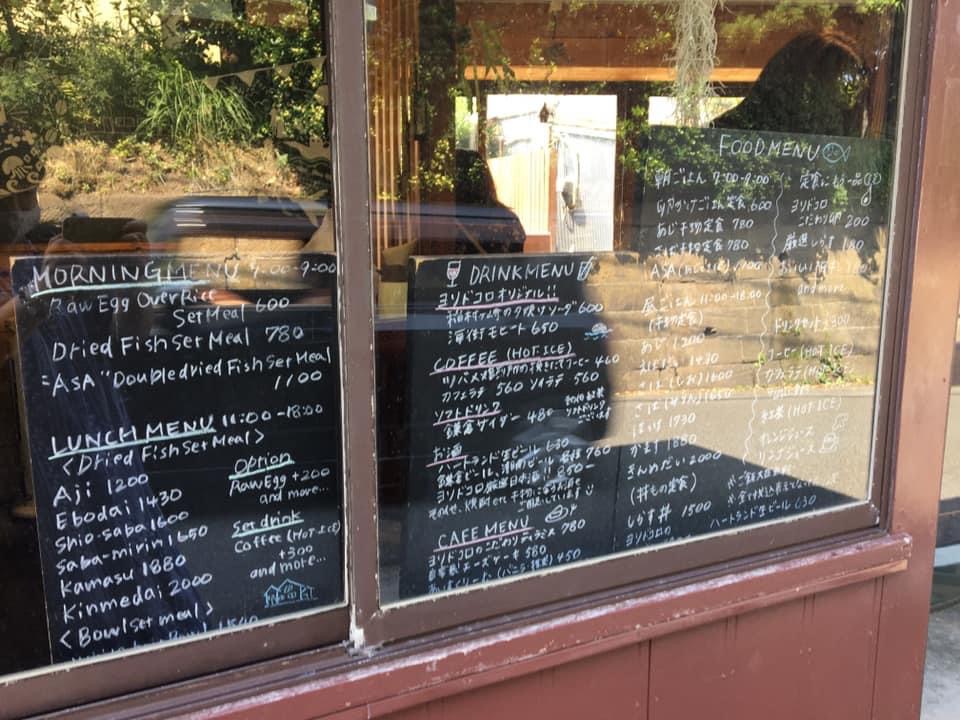 MORNING MENU 7:00-9:00
Raw Egg Over Rice
Set Meal 600
Dried Fish Set Meal 780
"ASA" Double dried Fish Set Meal
1100
LUNCH MENU 11:00-18:00
<Dried Fish Set Meal>
Aji 1200
Ebodai 1430
Shio-saba 1600
Saba-mirin 1650
Kamasu 1880
Kinmedai 2000
<Bowl set meal>
Option
Raw Egg +200
and more...
Set drink
Coffee (HOT.ICE)
+300
and more...
DRINK MENU
ヨリドコロオリジナル!!
稲村ヶ崎の夕映りソーダ 600
海街モヒート 650
COFFEE (HOT.ICE)
コーヒー 460
カフェラテ 560 ソイラテ 560
ソフトドリンク
鎌倉サイダー 480
お酒
ハートランド生ビール 630
鎌倉ビール、湘南ビール 各種 760
ヨリドコロ厳選日本酒 850~
CAFE MENU
ヨリドコロのこだわり 780
自家製チーズケーキ 580
450
FOOD MENU
朝ごはん 7:00-9:00
卵かけごはん定食 600
あじ干物定食 780
さば干物定食 780
昼ごはん 11:00-18:00
(干物定食)
あじ 1200
えぼだい 1430
さば(しお) 1600
さば(みりん) 1650
ほっけ 1730
かます 1880
きんめだい 2000
(丼もの定食)
しらす丼 1500
ヨリドコロの
定食にもう一品
ヨリドコロ
こだわり卵 200
厳選しらす 180
and more
ドリンクセット +300
コーヒー (HOT.ICE)
カフェラテ (HOT.ICE)
紅茶 (HOT.ICE)
オレンジジュース
リンゴジュース
ハートランド生ビール 630